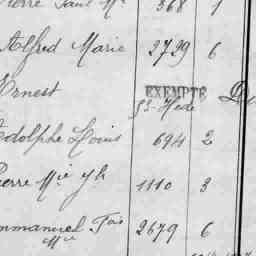 Pierre Paul Mie 368 1
Alfred Marie 2729 6
Ernest EXEMPTÉ
Adolphe Louis 694 2
Pierre Mie Jh 1110 3
Emmanuel Fois 2679 6
Mie